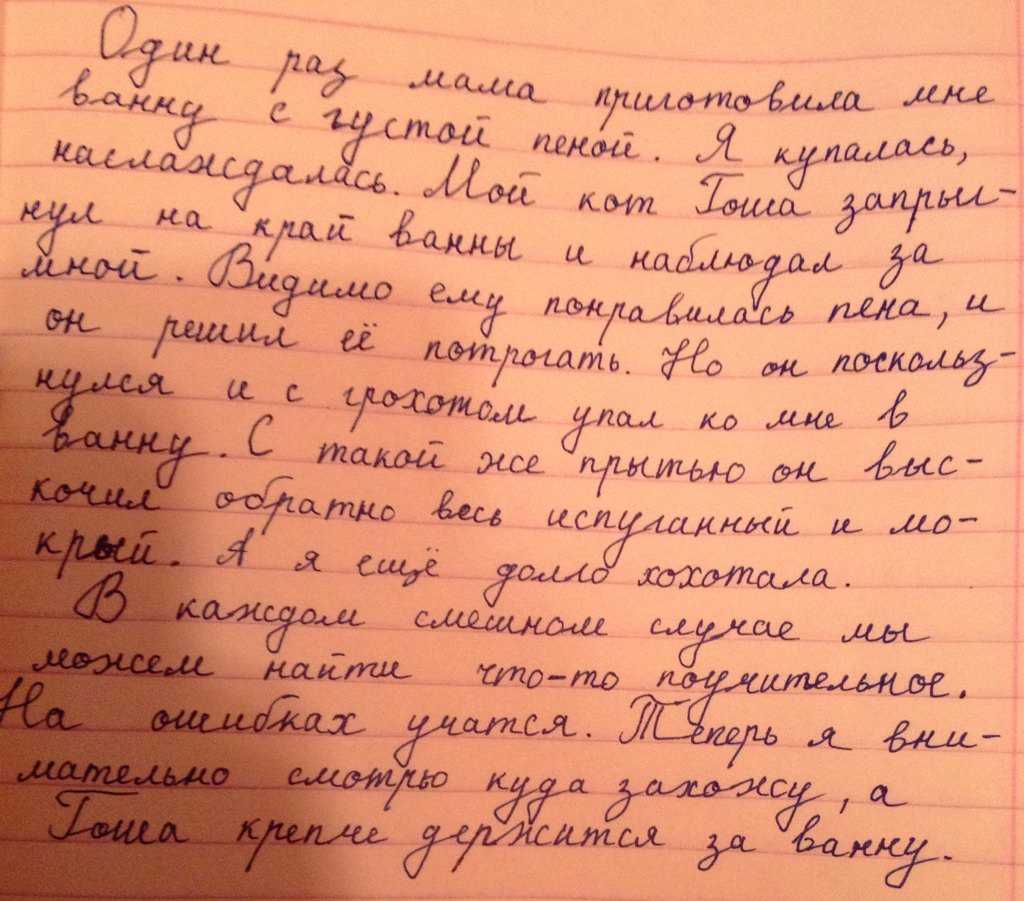 Один раз мама приготовила мне
ванну с густой пеной. Я купалась,
наслаждалась. Мой кот Гоша запрыг-
нул на край ванны и наблюдал за
мной. Видимо ему понравилась пена, и
он решил её потрогать. Но он поскольз-
нулся и с грохотом упал ко мне в
ванну. С такой же прытью он выс-
кочил обратно весь испуганный и мо-
крый. А я ещё долго хохотала.
В каждом смешном случае мы
можем найти что-то поучительное.
На ошибках учатся. Теперь я вни-
мательно смотрю куда захожу, а
Гоша крепче держится за ванну.